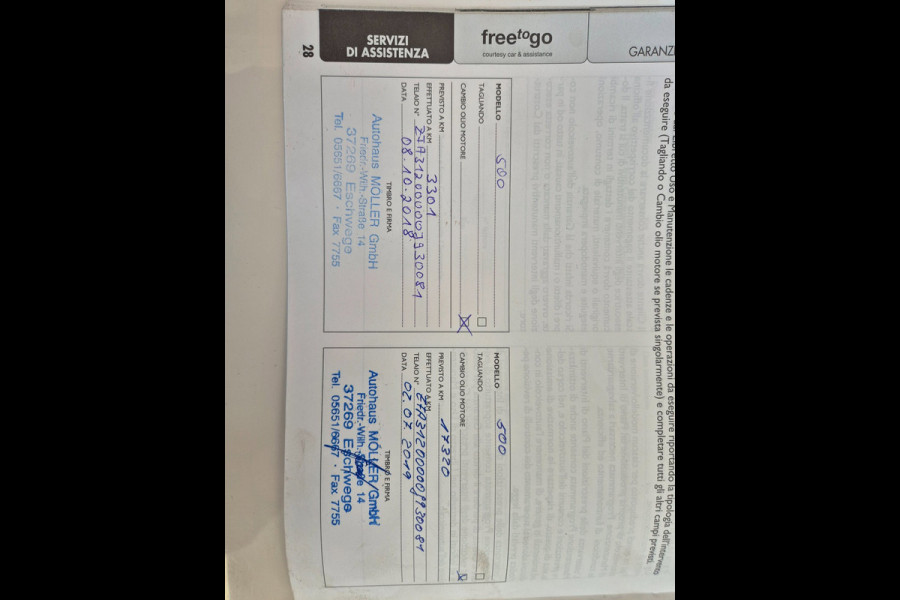 28
SERVIZI
DI ASSISTENZA
freetogo
courtesy car & assistance
GARANZI
Uso e Manutenzione le cadenze e le operazioni da eseguire riportando la tipologia dell'intervento
da eseguire (Tagliando o Cambio olio motore se prevista singolarmente) e completare tutti gli altri campi previsti.
MODELLO 500
TAGLIANDO
CAMBIO OLIO MOTORE X
PREVISTO A KM
EFFETTUATO A KM 3301
TELAIO N° ZFA31200000J930081
DATA 08.10.2018
TIMBRO E FIRMA
Autohaus MÖLLER GmbH
Friedr.-Wilh.-Straße 14
37269 Eschwege
Tel. 05651/6667 · Fax 7755
MODELLO 500
TAGLIANDO
CAMBIO OLIO MOTORE X
PREVISTO A KM
EFFETTUATO A KM 17320
TELAIO N° ZFA31200000J930081
DATA 02.07.2019
TIMBRO E FIRMA
Autohaus MÖLLER GmbH
Friedr.-Wilh.-Straße 14
37269 Eschwege
Tel. 05651/6667 · Fax 7755